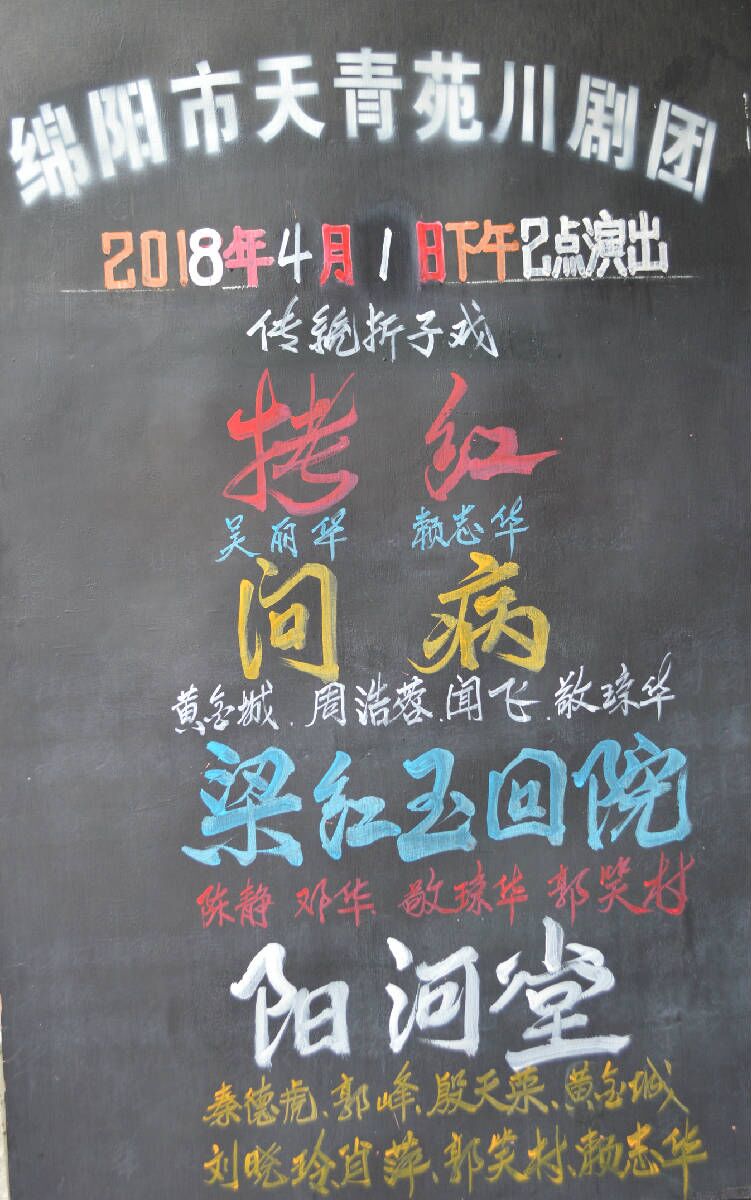 绵阳市天青苑川剧团
2018年4月1日下午2点演出
传统折子戏
拷红
吴丽华 赖志华
问病
黄金城、周浩蓉、闻飞、敬琼华
梁红玉回院
陈静 邓华、敬琼华 郭笑村
阳河堂
秦德虎、郭峰、殷天栗、黄金城
刘晓玲、肖萍、郭笑村、赖志华